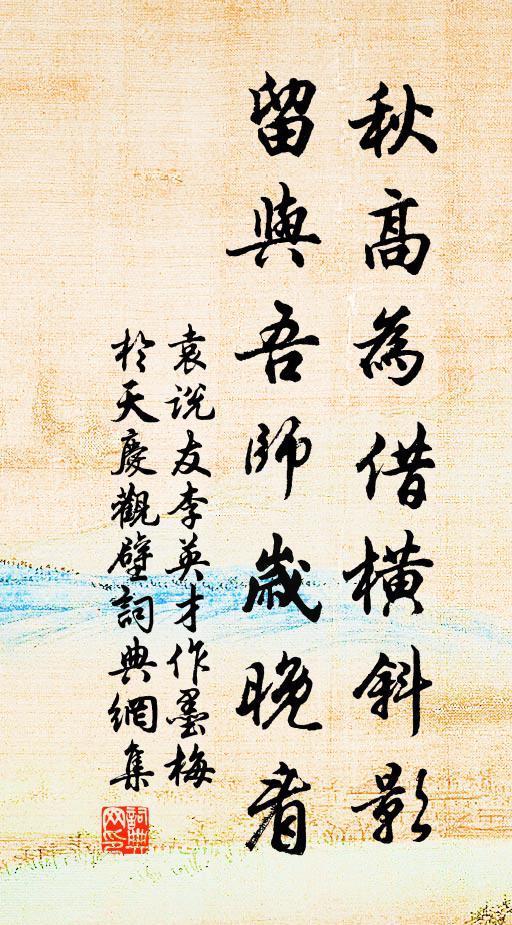 秋高為借橫斜影
留與吾師歲晚看
袁說友李英才作墨梅
於天慶觀壁詞典網集
詞典網印